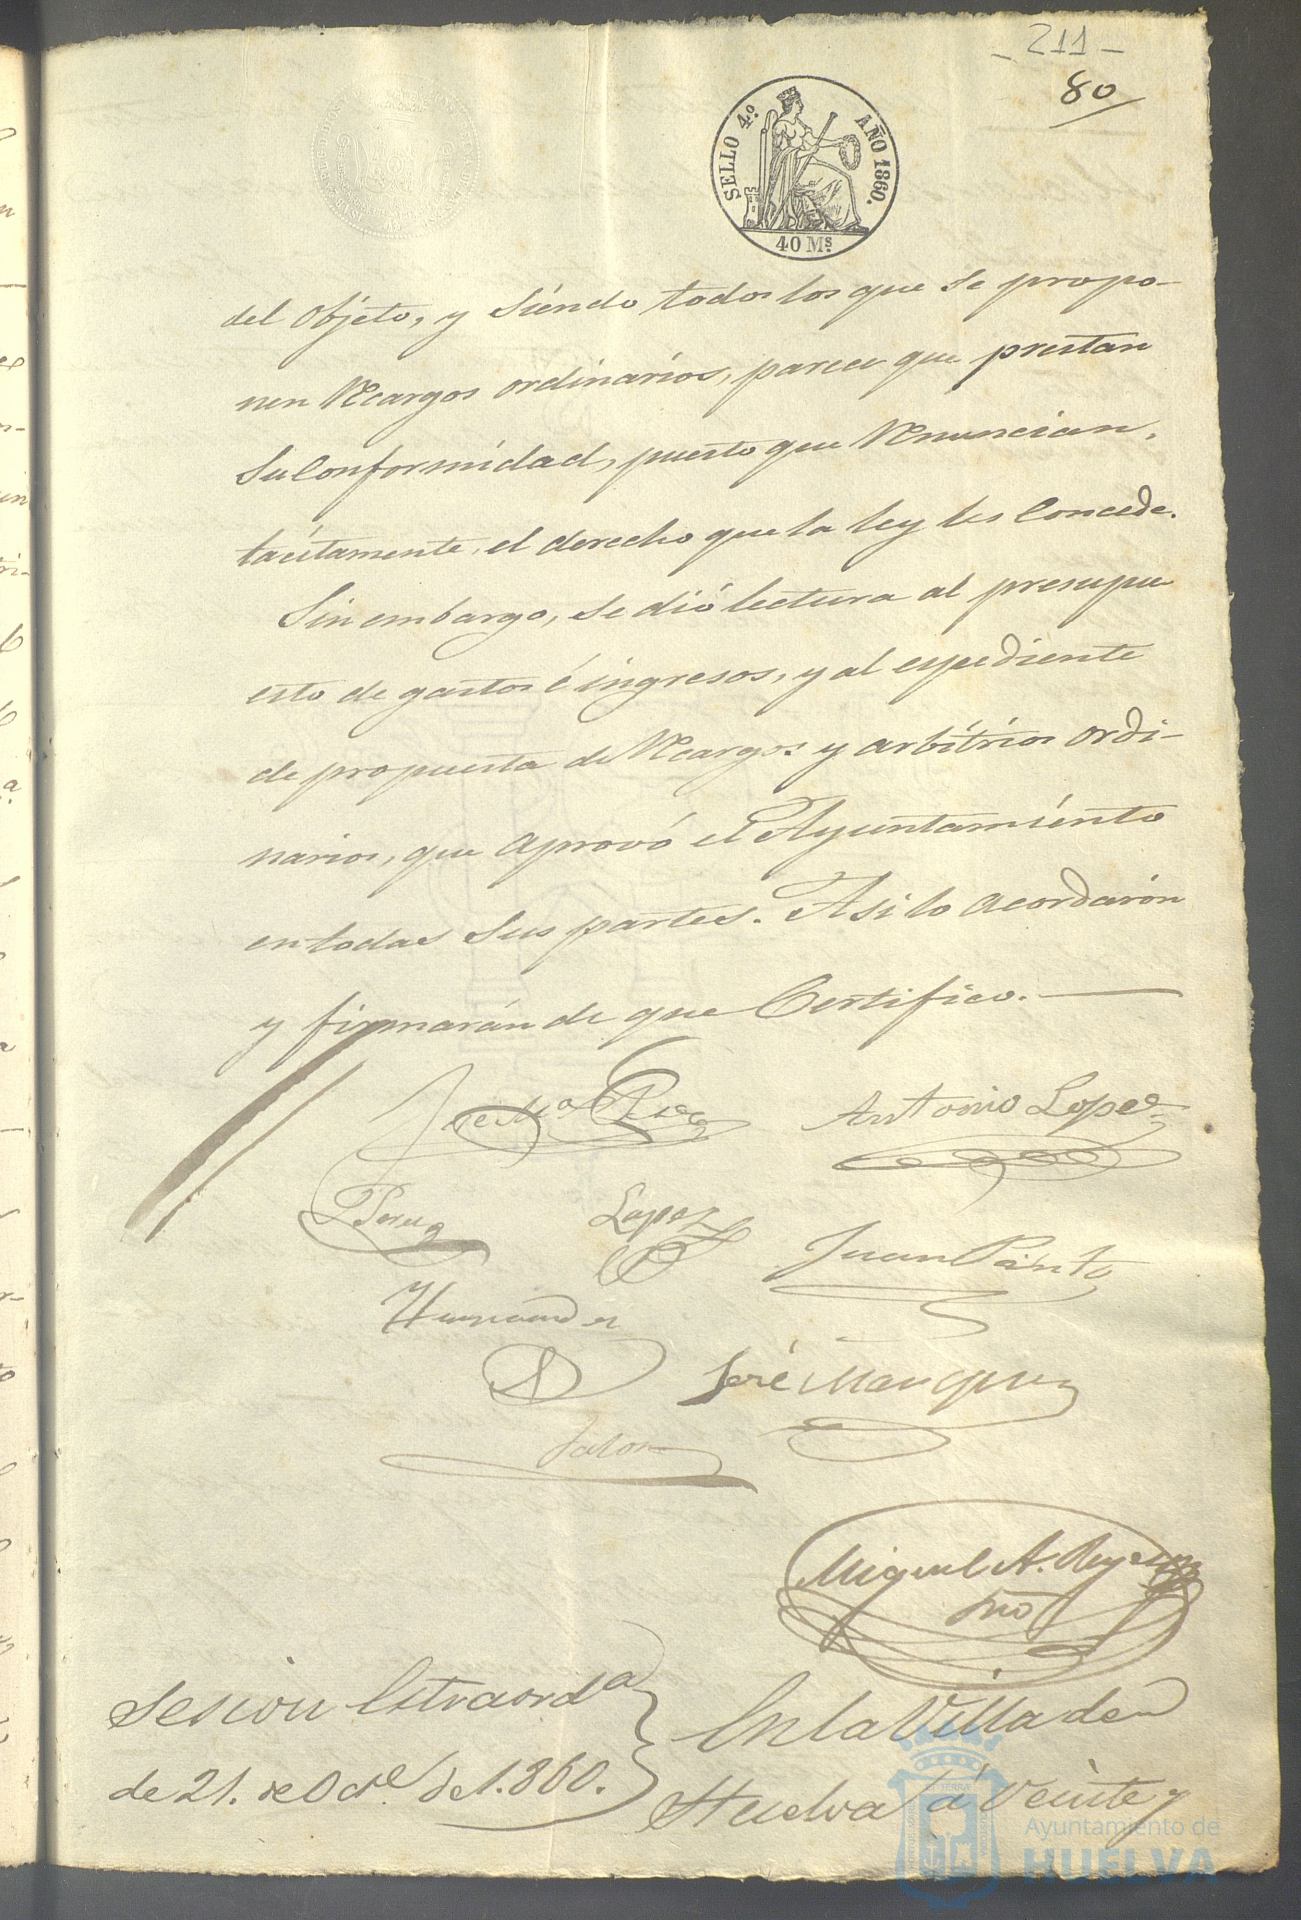 - 211 -
80
SELLO 4.º AÑO 1860.
40 M.s
del objeto, y siendo todos los que se propo-
nen Recargos ordinarios, parece que prestan
su Conformidad, puesto que Renuncian,
tacitamente, el derecho que la ley les Concede.
Sin embargo, se dió lectura al presupu
esto de gastos é ingresos, y al espediente
de propuesta de Recargos y arbitrios ordi-
narios, que aprovó el Ayuntamiento
en todas sus partes. Asi lo acordarón
y firmarán de que Certifico.
José Mª Antonio Lopez
Perez Lopez Juan Pinto
Hernandez
José Marquez
Jalon
Miguel A. Reyes
Srio
Sesion Estraordª
de 21. de Octe. de 1.860.
En la Villa de
Huelva á Veinte y
Ayuntamiento de
HUELVA